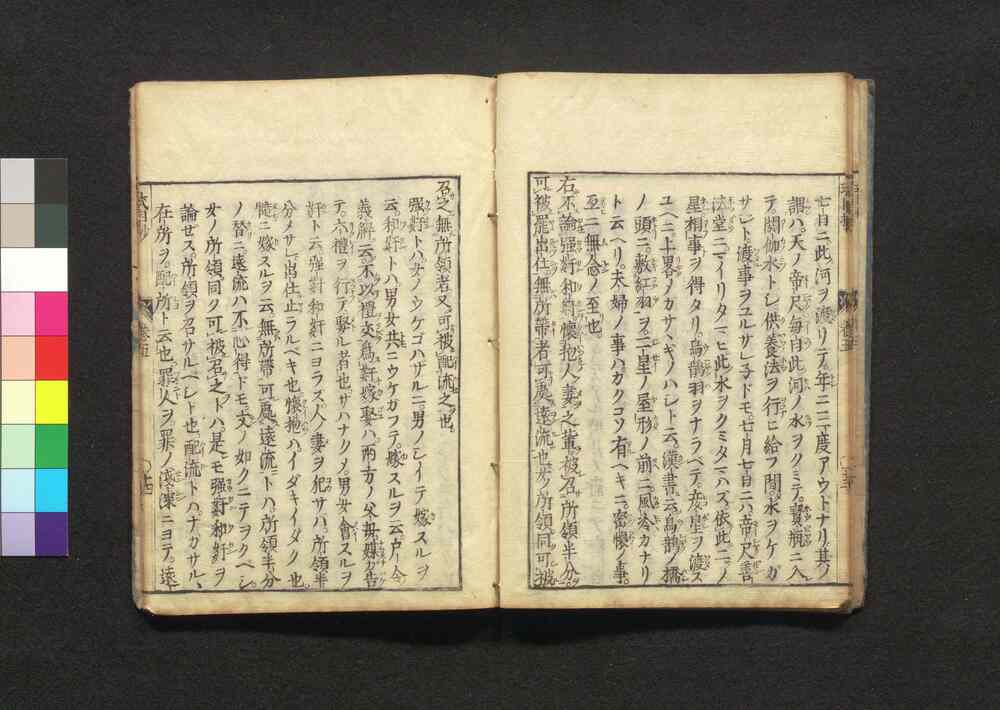 七日ニ此河ヲ渡リテ年ニ二度アウトナリ其ノ
謂ハ天ノ帝尺毎日此河ノ水ヲクミテ寳瓶ニ入
テ閼伽水トシ供養法ヲ行ヒ給フ間水ヲケガ
サレト渡事ヲユルサレ子ドモ七月七日ニハ帝尺善
法堂ニマイリタマヒ此水ヲクミタマハズ依此二ノ
星相事ヲ得タリ烏鵲羽ヲナラベテ彦星ヲ渡ス
ユヘニ上畧ノカササギノハシト云漢書云烏鵲橋
ノ頭ニ敷紅羽ヲ二星ノ屋形ノ前ニ風冷カナリ
ト云ヘリ夫婦ノ事ハカクコソ有ヘキニ密懐ノ事
至ニ無念ノ至也
右不論強姧和姧懐抱人妻之輩被召所領半分
可被罷出仕無所帯者可処遠流也女ノ所領同可被
召之無所領者又可被配流之也
強姧トハ女ノウケゴハザルニ男ノシイテ嫁スルヲ
云和姧トハ男女共ニウケガフテ嫁スルヲ云戸令
義解云不以禮交為姧嫁娶ハ両方ノ父母媒介告
テ六禮ヲ行テ娶ル者也サハナクメ男女會スルヲ
姧ト云強姧和姧ニヨラズ人ノ妻ヲ犯サハ所領半
分メサレ出仕止ラルベキ也懐抱ハイダキイダク也
犍ニ嫁スルヲ云無所帯可処遠流トハ所領半分
ノ替ニ遠流ハ不心得ドモ文ノ如クニテヲクベシ
女ノ所領同ク可被召之トハ是モ強姧和姧ヲ
論セス所領ヲ召サルベシト也配流トハナカサル
在所ヲ配所ト云也罪人ヲ罪ノ浅深ニヨテ遠